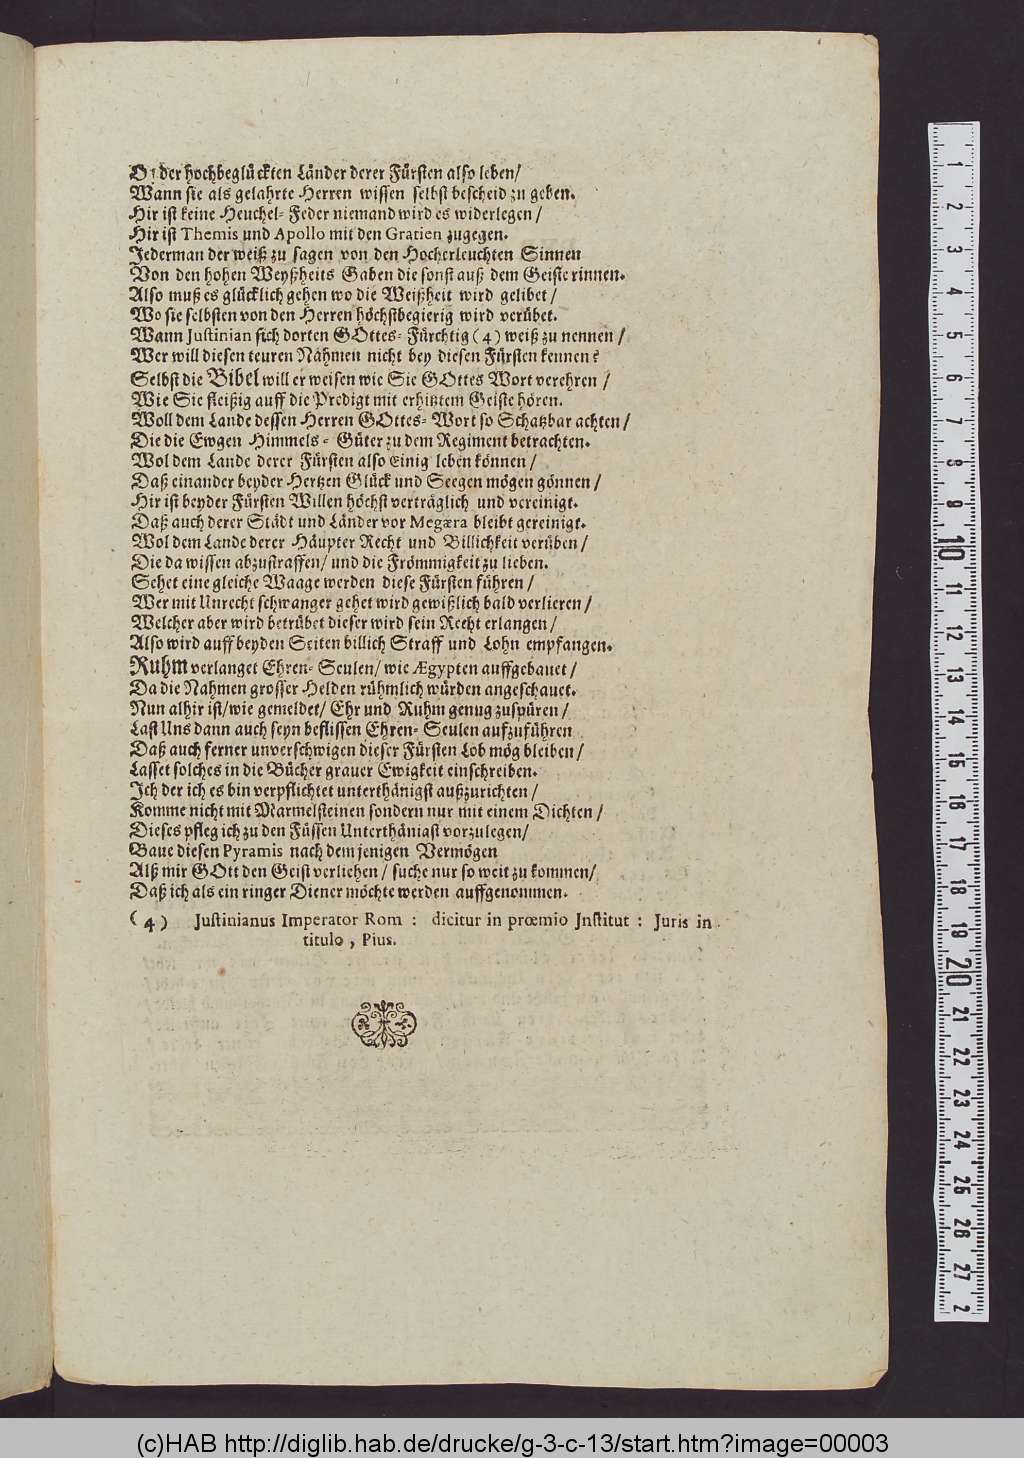 O! der hochbeglückten Länder derer Fürsten also leben/
Wann sie als gelahrte Herren wissen selbst bescheid zu geben.
Hir ist keine Heuchel-Feder niemand wird es widerlegen/
Hir ist Themis und Apollo mit den Gratien zugegen.
Jederman der weiß zu sagen von den Hocherleuchten Sinnen
Von den hohen Weyßheits Gaben die sonst auß dem Geiste rinnen.
Also muß es glücklich gehen wo die Weißheit wird gelibet/
Wo sie selbsten von den Herren höchstbegierig wird verübet.
Wann Justinian sich dorten GOttes-Fürchtig (4) weiß zu nennen/
Wer will diesen teuren Nahmen nicht bey diesen Fürsten kennen?
Selbst die Bibel will erweisen wie Sie GOttes Wort verehren/
Wie Sie fleißig auff die Predigt mit erhitztem Geiste hören.
Woll dem Lande dessen Herren GOttes-Wort so Schatzbar achten/
Die die Ewgen Himmels-Güter zu dem Regiment betrachten.
Wol dem Lande derer Fürsten also Einig leben können/
Daß einander beyder Hertzen Glück und Seegen mögen gönnen/
Hir ist beyder Fürsten Willen höchst verträglich und vereinigt.
Daß auch derer Städt und Länder vor Megæra bleibt gereinigt.
Wol dem Lande derer Häupter Recht und Billichkeit verüben/
Die da wissen abzustraffen/ und die Frömmigkeit zu lieben.
Sehet eine gleiche Waage werden diese Fürsten führen/
Wer mit Unrecht schwanger gehet wird gewißlich bald verlieren/
Welcher aber wird betrübet dieser wird sein Recht erlangen/
Also wird auff beyden Seiten billich Straff und Lohn empfangen.
Ruhm verlanget Ehren-Seulen/ wie Ægypten auffgebauet/
Da die Nahmen grosser Helden rühmlich würden angeschauet.
Nun alhir ist/wie gemeldet/ Ehr und Ruhm genug zuspüren/
Last Uns dann auch seyn beflissen Ehren-Seulen aufzuführen
Daß auch ferner unverschwigen dieser Fürsten Lob mög bleiben/
Lasset solches in die Bücher grauer Ewigkeit einschreiben.
Ich der ich es bin verpflichtet unterthänigst außzurichten/
Komme nicht mit Marmelsteinen sondern nur mit einem Dichten/
Dieses pfleg ich zu den Füssen Unterthänigst vorzulegen/
Baue diesen Pyramis nach dem jenigen Vermögen
Alß mir GOtt den Geist verliehen/ suche nur so weit zu kommen/
Daß ich als ein ringer Diener möchte werden auffgenommen.
(4) Justinianus Imperator Rom: dicitur in prœmio Institut: Juris in
titulo, Pius.
1
2
3
4
5
6
7
8
9
10
11
12
13
14
15
16
17
18
19
20
21
22
23
24
25
26
27
2
(c)HAB http://diglib.hab.de/drucke/g-3-c-13/start.htm?image=00003